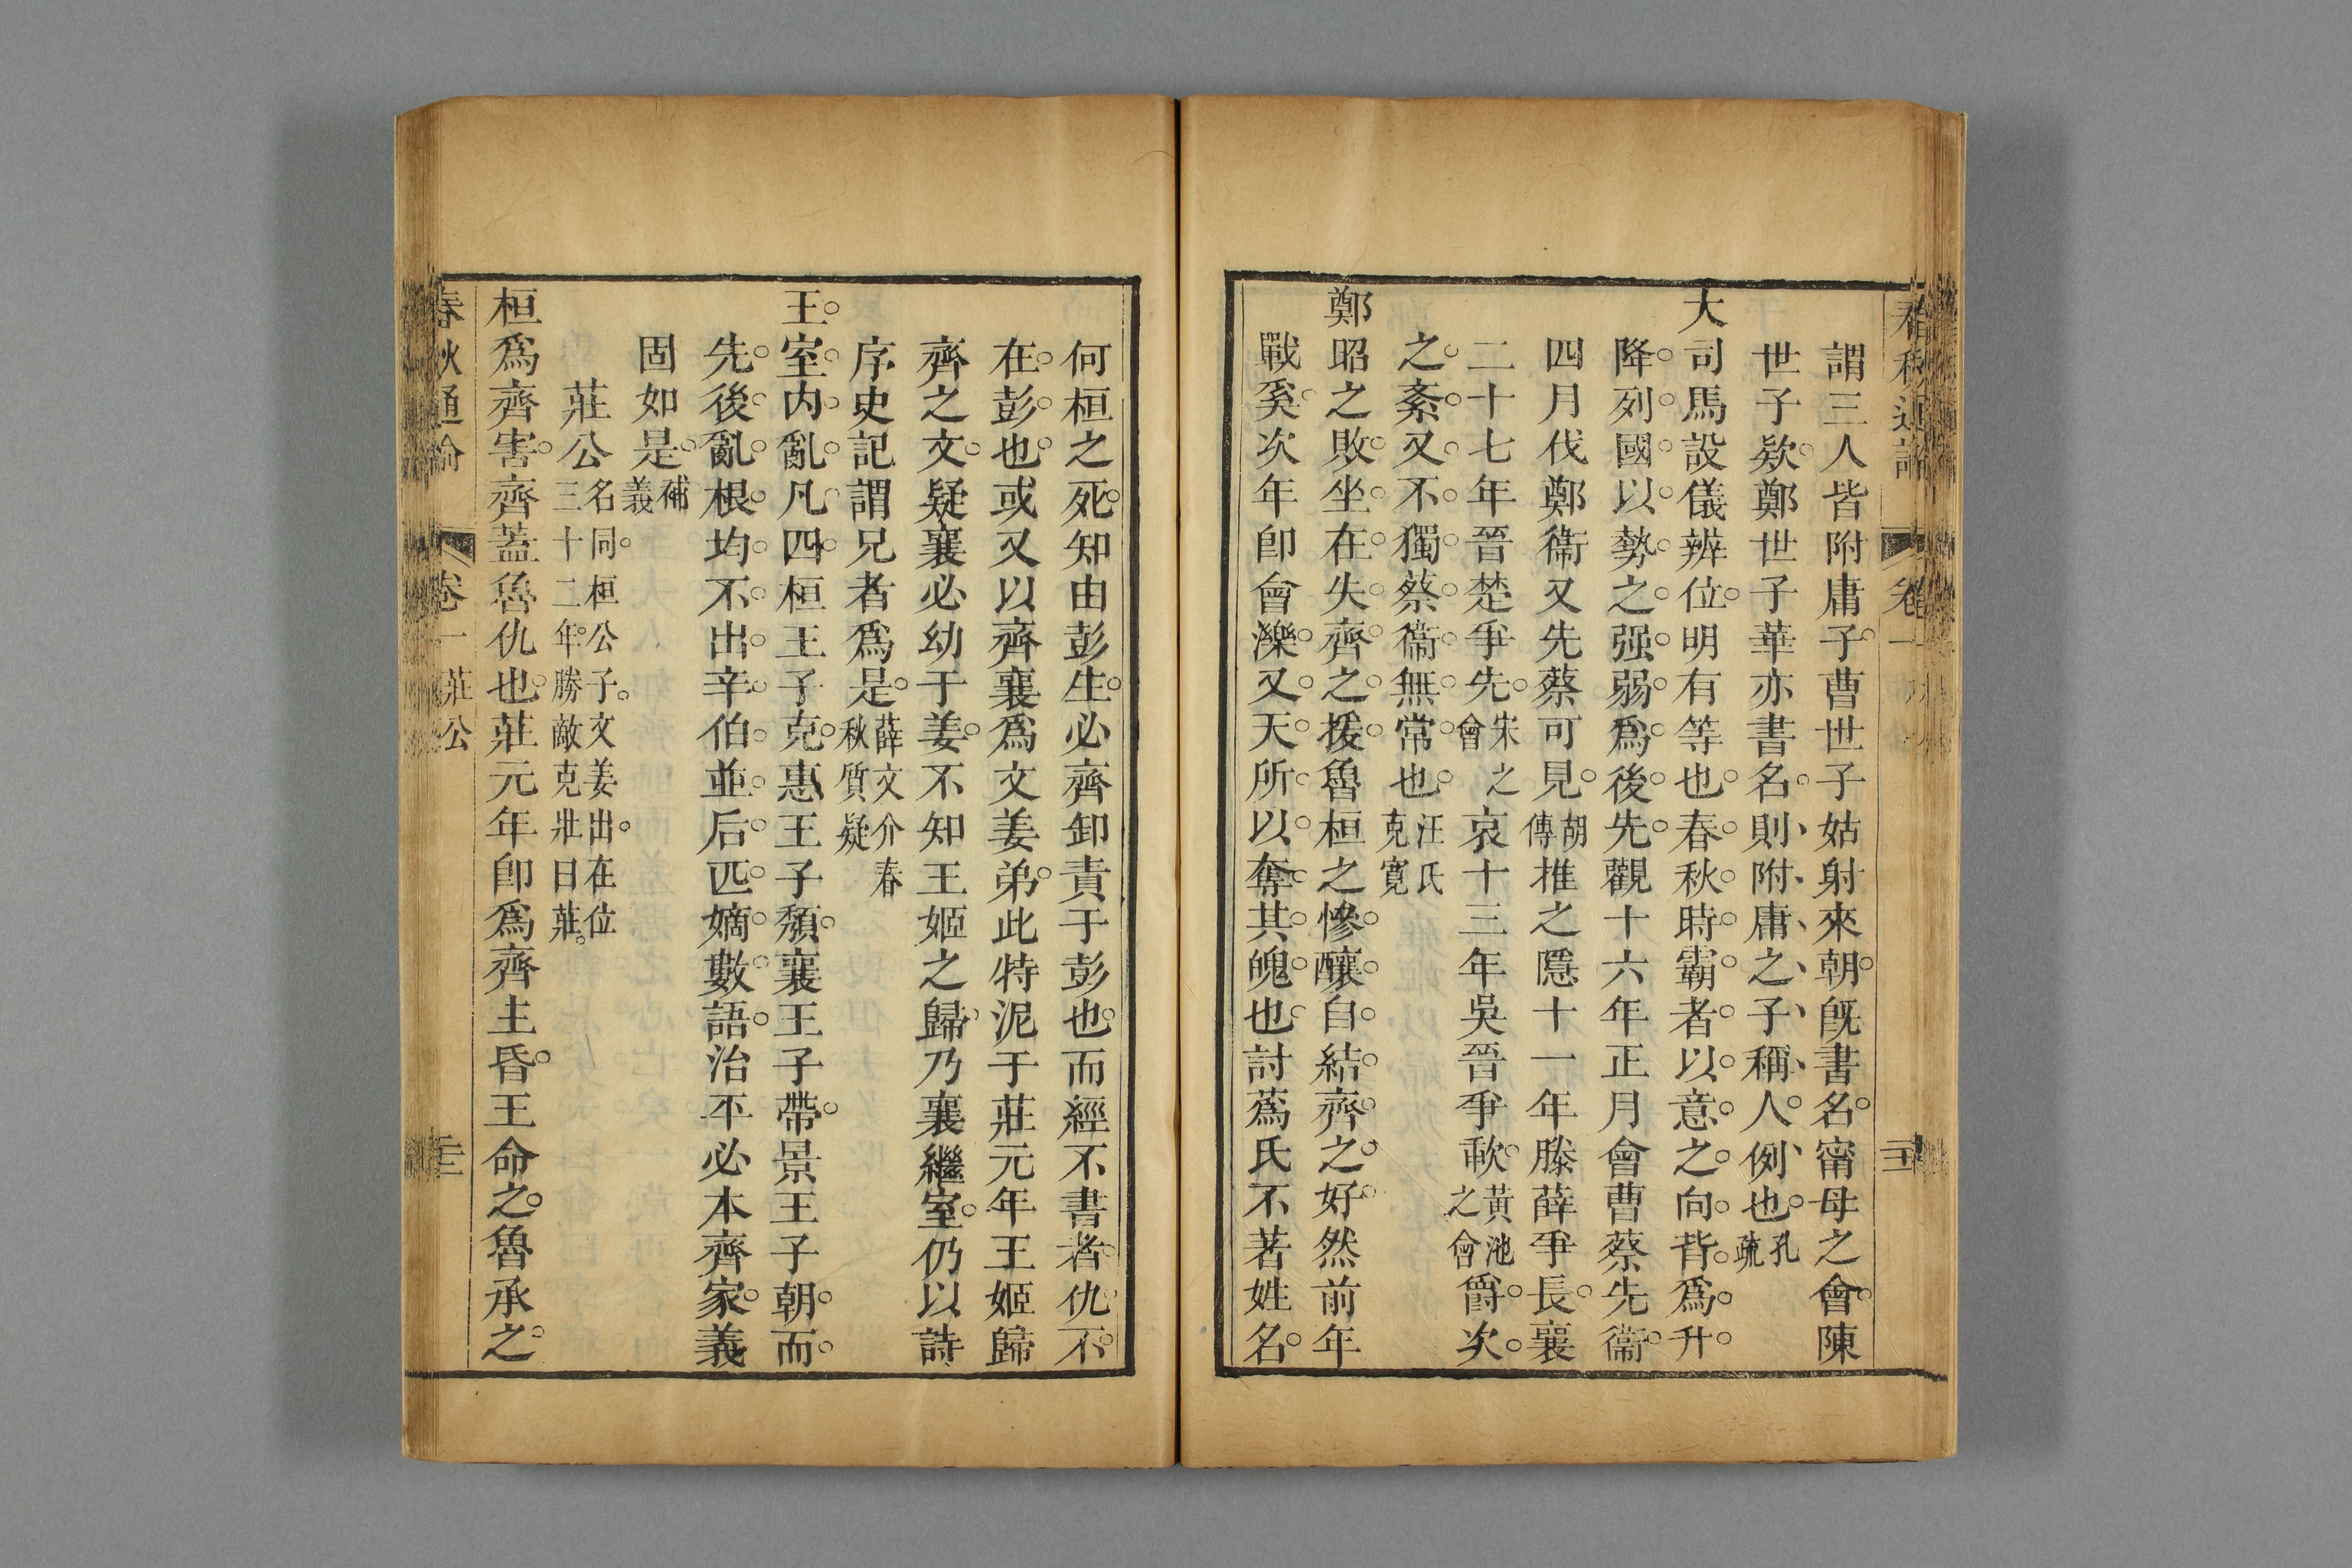 春秋通論 卷一
謂三人皆附庸子曹世子姑射來朝旣書名甯母之會陳
世子欵鄭世子華亦書名則附庸之子稱人例也孔疏
大司馬設儀辨位明有等也春秋時霸者以意之向背爲升
降列國以勢之强弱爲後先觀十六年正月會曹蔡先衞
四月伐鄭衞又先蔡可見胡傳推之隱十一年滕薛爭長襄
二十七年晉楚爭先宋之會哀十三年吳晉爭歃黃池之會爵次
之紊又不獨蔡衞無常也汪氏克寬
鄭昭之敗坐在失齊之援魯桓之慘釀自結齊之好然前年
戰奚次年卽會濼又天所以奪其魄也討蔿氏不著姓名
何桓之死知由彭生必齊卸責于彭也而經不書者仇不
在彭也或又以齊襄爲文姜弟此特泥于莊元年王姬歸
齊之文疑襄必幼于姜不知王姬之歸乃襄繼室仍以詩
序史記謂兄者爲是薛文介春秋質疑
王室内亂凡四桓王子克惠王子頽襄王子帶景王子朝而
先後亂根均不出辛伯並后匹嫡數語治不必本齊家義
固如是補義
莊公名同桓公子文姜出在位三十二年勝敵克壯曰莊
桓爲齊害齊蓋魯仇也莊元年卽爲齊主昏王命之魯承之
春秋通論 卷一 莊公